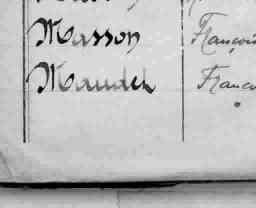 Masson François
Maudet Franço